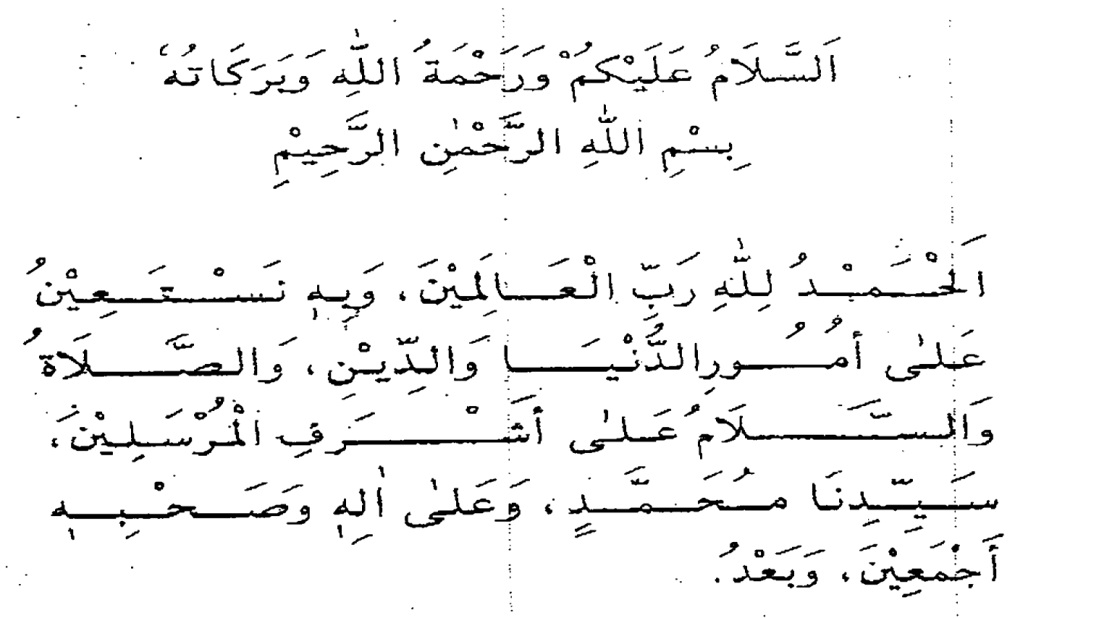 اَلسَّلَامُ عَلَيْكُمْ وَرَحْمَةُ اللّٰهِ وَبَرَكَاتُهُ
بِسْمِ اللّٰهِ الرَّحْمٰنِ الرَّحِيْمِ
اَلْحَمْدُ لِلّٰهِ رَبِّ الْعَالَمِيْنَ، وَبِهٖ نَسْتَعِيْنُ
عَلٰى أُمُورِالدُّنْيَا وَالدِّيْنِ، وَالصَّلَاةُ
وَالسَّلَامُ عَلٰى أَشْرَفِ الْمُرْسَلِيْنَ،
سَيِّدِنَا مُحَمَّدٍ، وَعَلٰى اٰلِهٖ وَصَحْبِهٖ
أَجْمَعِيْنَ، وَبَعْدُ.